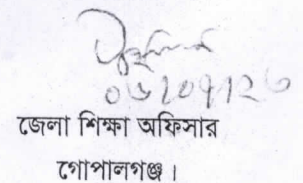 ০৬/০৭/২৩
জেলা শিক্ষা অফিসার
গোপালগঞ্জ।